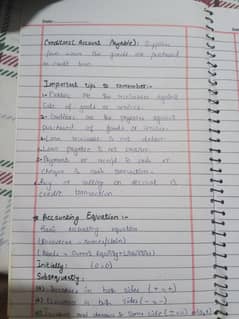 Creditors (Account Payable): Suppliers
from whom the goods are purchased
on credit
Important tips to remember:-
1- Debtors are the receivables against
Sale of goods or services.
2- Creditors are the payables against
purchased of goods or services.
3- Loan receivable is not debtor.
4- Loan payable is not creditor.
5- Payment or receipt by cash or
cheque is cash transaction.
6- Buy or selling on account is
credit transaction.
Accounting Equation:-
Basic accounting equation
(Resources = Sources/claim)
(Assets = Owner's Equity + Liabilities)
Initially: (0=0)
Subsequently:
(A) Increase in both sides (+ = +)
(B) Decrease in both sides (- = -)
Increase and decrease in same side